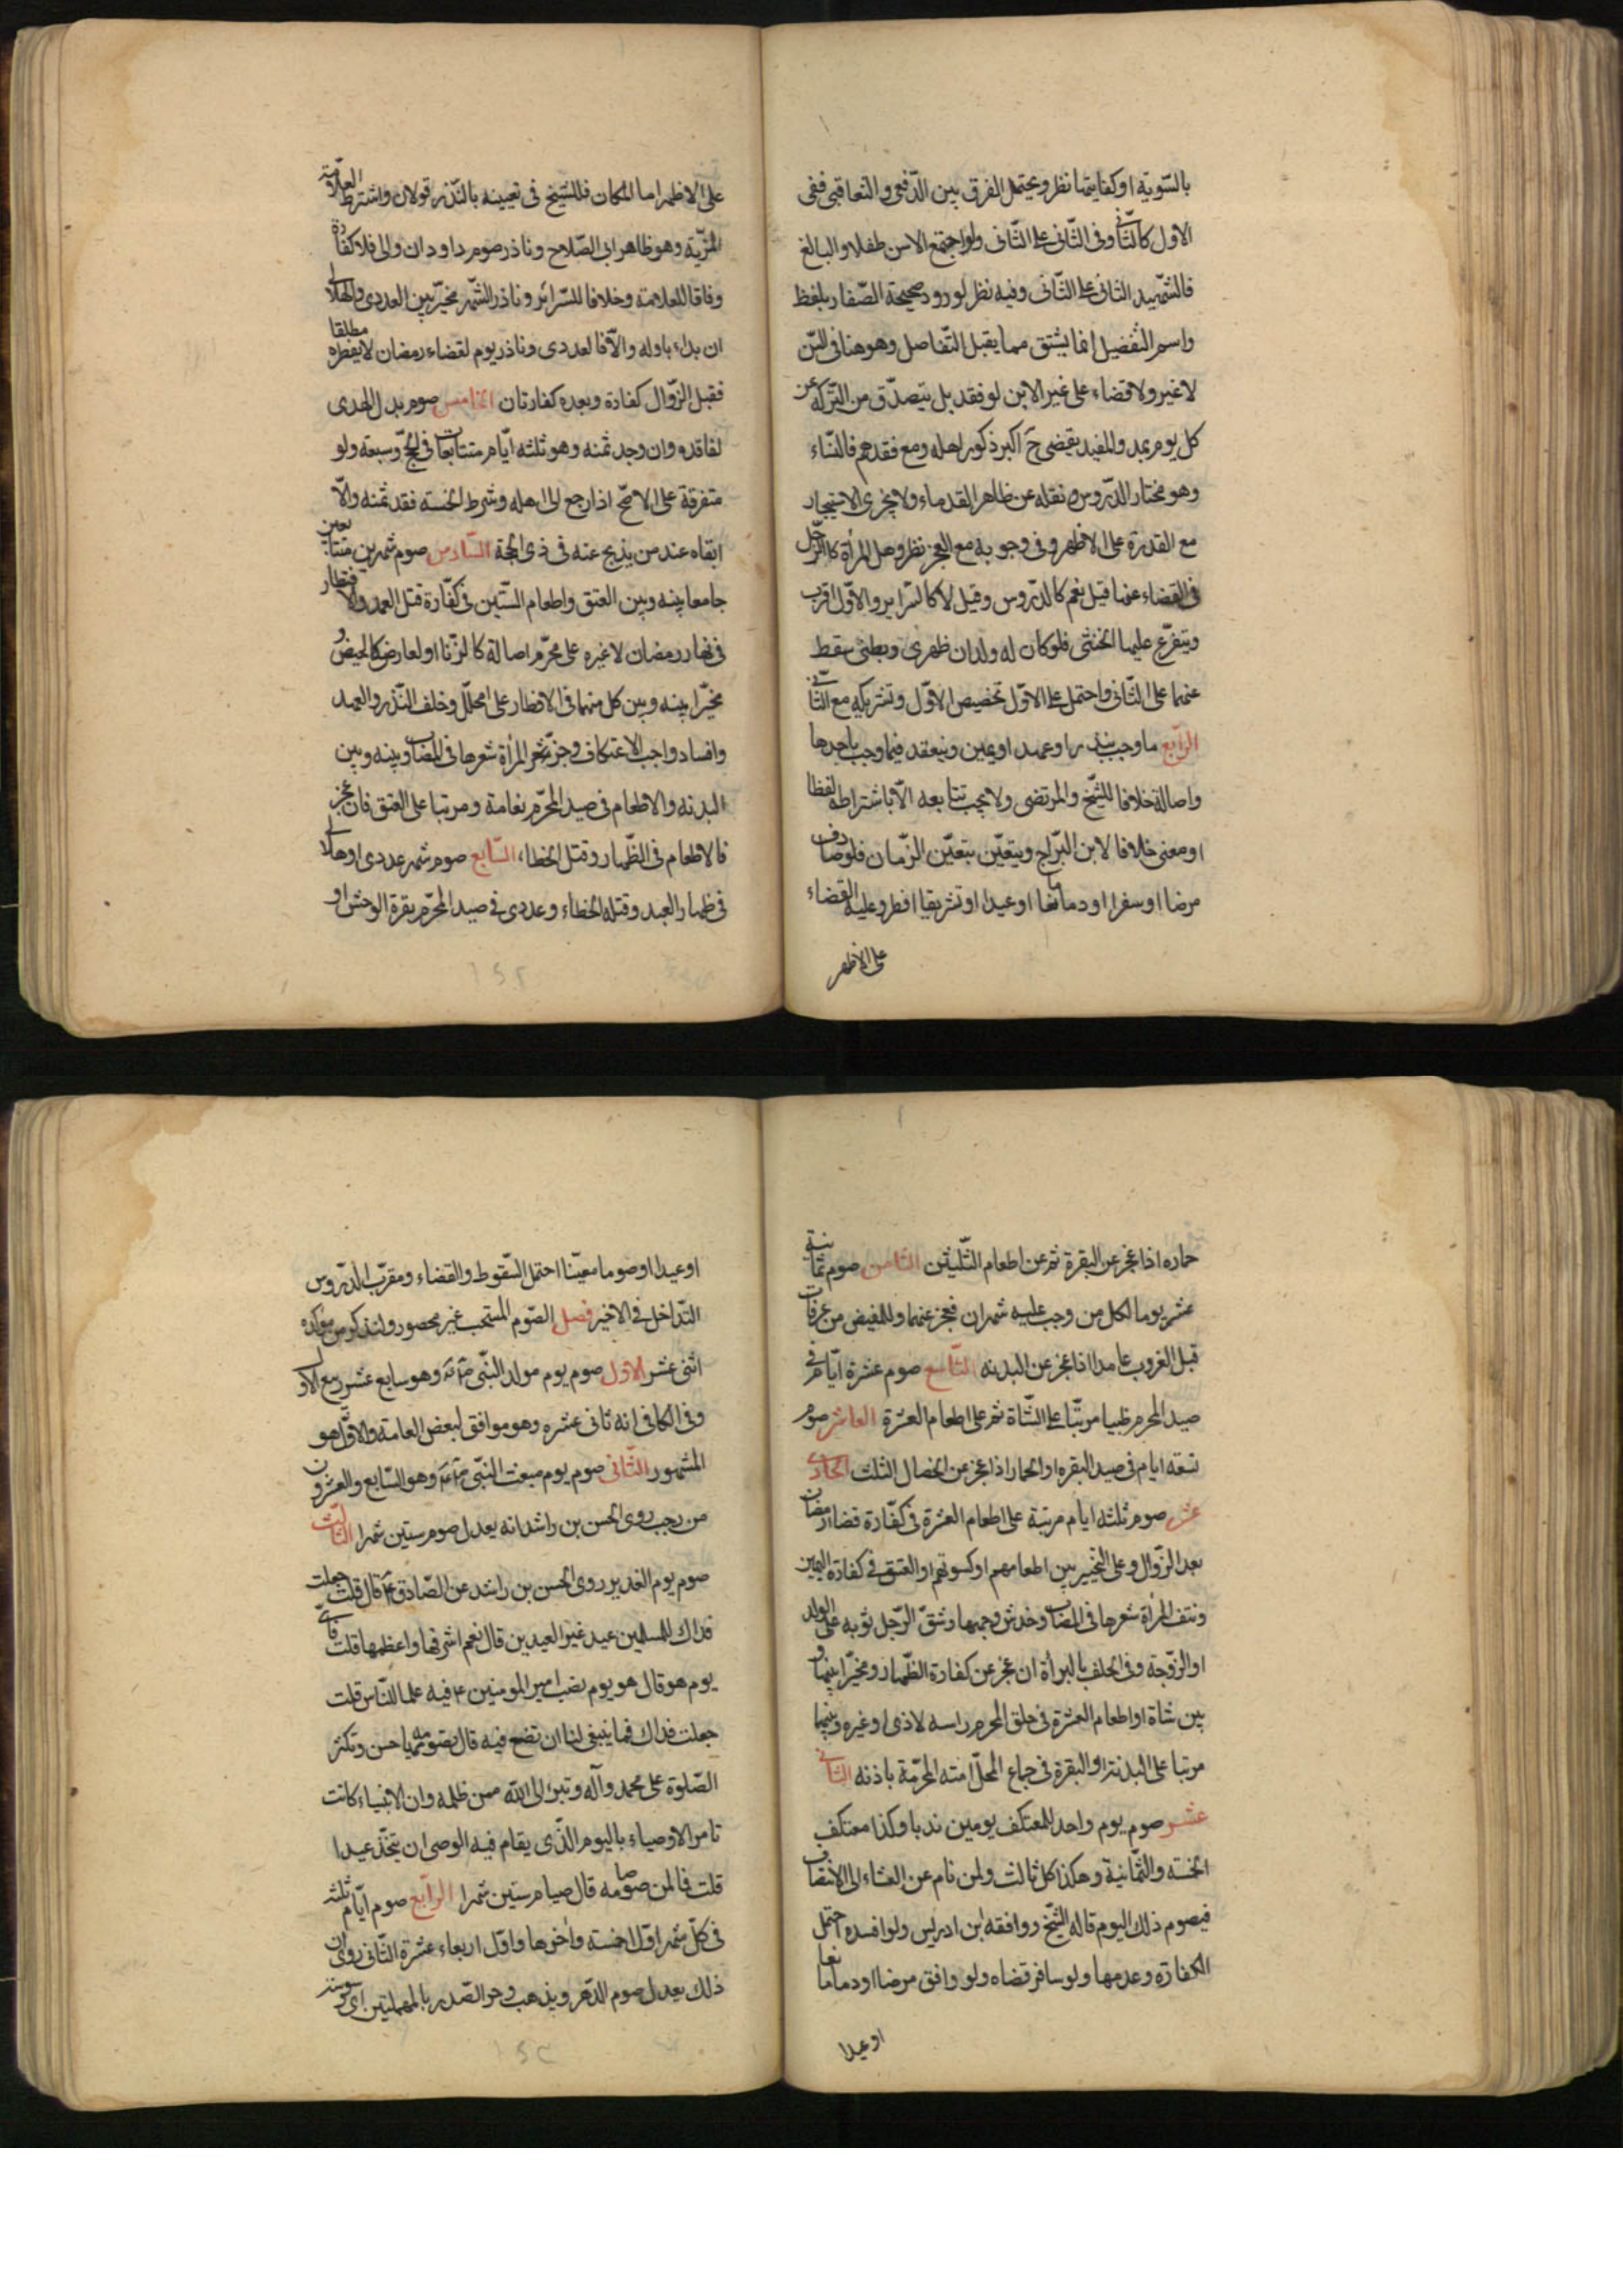 بالسّويّة او كفايتها نظر و يحتمل الفرق بين الدّفعى و التعاقبى ففى
الاول كالثّانى وفى الثّانى على الثّانى ولو اجتمع الاسن طفلا والبالغ
فالشّهيد الثانى على الثّانى وفيه نظر لورود صحيحة الصّفار بلفظ
واسم التفضيل انما يشتق مما يقبل التّفاضل وهو هنا فى السّن
لا غير ولا قضاء على غير الابن لو فقد بل يتصدّق من التّركة عن
كل يوم بمد والمفيد يقضى ح اكبر ذكور اهله ومع فقدهم فالنّساء
وهو مختار الدّروس ونقله عن ظاهر القدماء ولا يجزى الاستيجار
مع القدرة على الاظهر وفى وجوبه مع العجز نظر وهل المرأة كالرّجل
فى القضاء عنها قيل نعم كالدّروس وقيل لا كالسّراير والاوّل اقرب
ويتفرّع عليهما الخنثى فلو كان له ولدان ظهرى وبطنى سقط
عنهما على الثّانى واحتمل على الاوّل تخصيص الاوّل وتشريكه مع الثّانى
الرّابع ما وجب بنذر او عهد او يمين وينعقد فيما وجب باحدها
واصالة خلافا للشّيخ والمرتضى ولا يجب تتابعه الّا باشتراطه لفظا
او معنى خلافا لابن البّراج ويتعيّن بتعيّن الزّمان فلو صادف
مرضا او سفرا او دما مانعا او عيدا او تشريقا افطر وعليه القضاء
على الاظهر
على الاظهر اما المكان فللشّيخ فى تعيينه بالنّذر قولان واشترط العلّامة
المزّية وهو ظاهر ابى الصّلاح وناذر صوم داود ان والى فلا كفّارة
وفاقا للعلامة وخلافا للسّرائر وناذر الشّهر مخيّر بين العددى والهلالى
ان بداء باوله والّا فالعددى وناذر يوم لقضاء رمضان لا يفطره مطلقا
فقبل الزّوال كفارة وبعده كفارتان الخامس صوم بدل الهدى
لفاقده وان وجد ثمنه وهو ثلثة ايّام متتابعات فى الحجّ وسبعة ولو
متفرقة على الاصّح اذا رجع الى اهله وشرط الخمسة فقد ثمنه والّا
ابقاه عند من يذبح عنه فى ذى الحجة السّادس صوم شهرين متتابعين
جامعا بينه وبين العتق واطعام السّتين فى كفّارة قتل العمد والافطار
فى نهار رمضان لا غيره على محرّم اصالة كالزنا او لعارض كالحيض و
مخيّرا بينه وبين كل منهما فى الافطار على محلّل وخلف النّذر والعهد
وافساد واجب الاعتكاف وجزّ المرأة شعرها فى المصاب وبينه وبين
البدنه والاطعام فى صيد المحرّم نعامة ومرتبا على العتق فان عجز
فالاطعام فى الظّهار وقتل الخطاء، السّابع صوم شهر عددى او هلالى
فى ظهار العبد وقتله الخطاء وعددى فى صيد المحرّم بقرة الوحش او
حماره اذا عجز عن البقرة ثم عن اطعام الثّلثين الثّامن صوم ثمانية
عشر يوما لكل من وجب عليه شهران فعجز عنهما وللمفيض من عرفات
قبل الغروب عامدا اذا عجز عن البدنه التّاسع صوم عشرة ايّام فى
صيد المحرم ظبيا مرتّبا على الشّاة ثم على اطعام العشرة العاشر صوم
تسعة ايام فى صيد البقره او الحمار اذا عجز عن الخصال الثلث الحادى
عشر صوم ثلثه ايام مرتبة على اطعام العشرة فى كفّارة قضاء رمضان
بعد الزّوال وعلى التخيير بين اطعامهم او كسوتهم او العتق فى كفارة اليمين
ونتف المرأة شعرها فى المصاب وخدش وجهها وشقّ الرّجل ثوبه على الولد
او الزّوجة وفى الحلف بالبرأة ان عجز عن كفارة الظّهار ومخيّرا بينها و
بين شاة او اطعام العشرة فى حلق المحرم راسه لاذى او غيره وبينها
مرتبا على البدنة او البقرة فى جماع المحلّ امته المحرّمة باذنه الثانى
عشر صوم يوم واحد للمعتكف يومين ندبا وكذا معتكف
الخمسة والثّمانية وهكذا كل ثالث ولمن نام عن العشاء الى الانتصاف
فيصوم ذلك اليوم قاله الشّيخ ووافقه ابن ادريس ولو افسده احتمل
الكفارة وعدمها ولو سافر قضاه ولو وافق مرضا او دما مانعا
او عيدا
او عيدا او صوما معيّنا احتمل السّقوط والقضاء ومقرّب الدّروس
التّداخل فى الاخير فصل الصّوم المستحب غير محصور ولنذكر من مؤكده
اثنى عشر الاوّل صوم يوم مولد النّبى وهو سابع عشر ربيع الاول
وفى الكافى انه ثانى عشره وهو موافق لبعض العامة والاوّل هو
المشهور الثّانى صوم يوم مبعث النبّى وهو السّابع والعشرون
من رجب روى الحسن بن راشد انه يعدل صوم ستين شهرا الثالث
صوم يوم الغدير روى الحسن بن راشد عن الصّادق ع قال قلت جعلت
فداك للمسلمين عيد غير العيدين قال نعم اشرفها واعظمها قلت فاى
يوم هو قال هو يوم نصب امير المومنين ع فيه علما للنّاس قلت
جعلت فداك فما ينبغى لنا ان نضع فيه قال تصومه يا حسن وتكثر
الصّلوة على محمد وآله وتبرا الى الله ممن ظلمه وان الانبياء كانت
تامر الاوصياء باليوم الّذى يقام فيه الوصى ان يتخذ عيدا
قلت فما لمن صامه قال صيام ستين شهرا الرّابع صوم ايّام ثلثه
فى كلّ شهر اوّل خمسه وأخرها واوّل اربعاء عشرة الثّانى روى ان
ذلك يعدل صوم الدّهر ويذهب وحر الصّدر بالمهملتين اى وسوسته